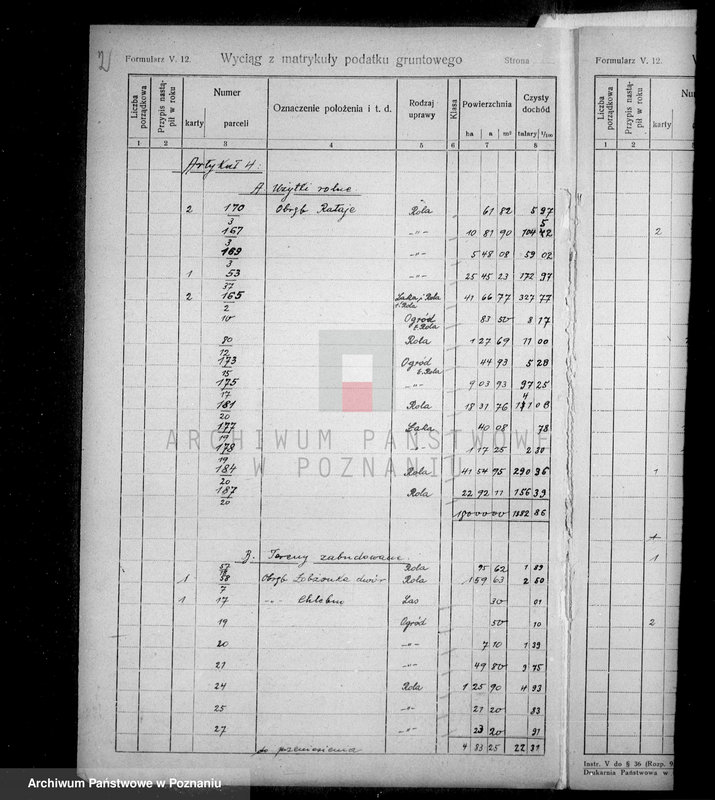 2)
Formularz V. 12. Wyciąg z matrykuły podatku gruntowego Strona
Liczba porządkowa Przypis nastąpił w roku Numer karty parceli Oznaczenie położenia i t. d. Rodzaj uprawy Klasa Powierzchnia ha a m² Czysty dochód talary 1/100
1 2 3 4 5 6 7 8
Artykuł 4.
A. Użytki rolne.
2 170/3 Obręb Rataje Rola 61 82 5 97
167/3 -"- 10 81 90
169/3 -"- 5 48 08 59 02
1 53/37 -"- 25 45 23 172 97
2 165/2 Łąka, Rola 41 66 77 327 77
10 Ogród ż. Rola 83 50 8 17
80/12 Rola 1 27 69 11 00
173/15 Ogród ż. Rola 44 93 5 28
175/17 -"- 9 03 93 97 25
181/20 Rola 18 31 76
177/19 Łąka 40 08 78
178/19 " 1 17 25 2 30
184/20 Rola 41 54 95 290 36
187/20 Rola 22 92 11 156 39
180 00 00 1382 86
B. Tereny zabudowane.
57 Rola 95 62 1 89
1 58/7 Obręb dwór Rola 1 59 63 2 50
1 17 -"- Las 30 01
19 Ogród 50 10
20 -"- 7 10 1 39
21 -"- 49 80 9 75
24 Rola 1 25 90 4 93
25 -"- 21 20 83
27 -"- 23 20 91
do przeniesienia 4 83 25 22 31
Formularz V. 12.
Liczba porządkowa Przypis nastąpił w roku karty
1 2
2
1
+
1
2
Instr. V do § 36 (Rozp. 9
Drukarnia Państwowa w
ARCHIWUM PAŃSTWOWE
W POZNANIU
Archiwum Państwowe w Poznaniu